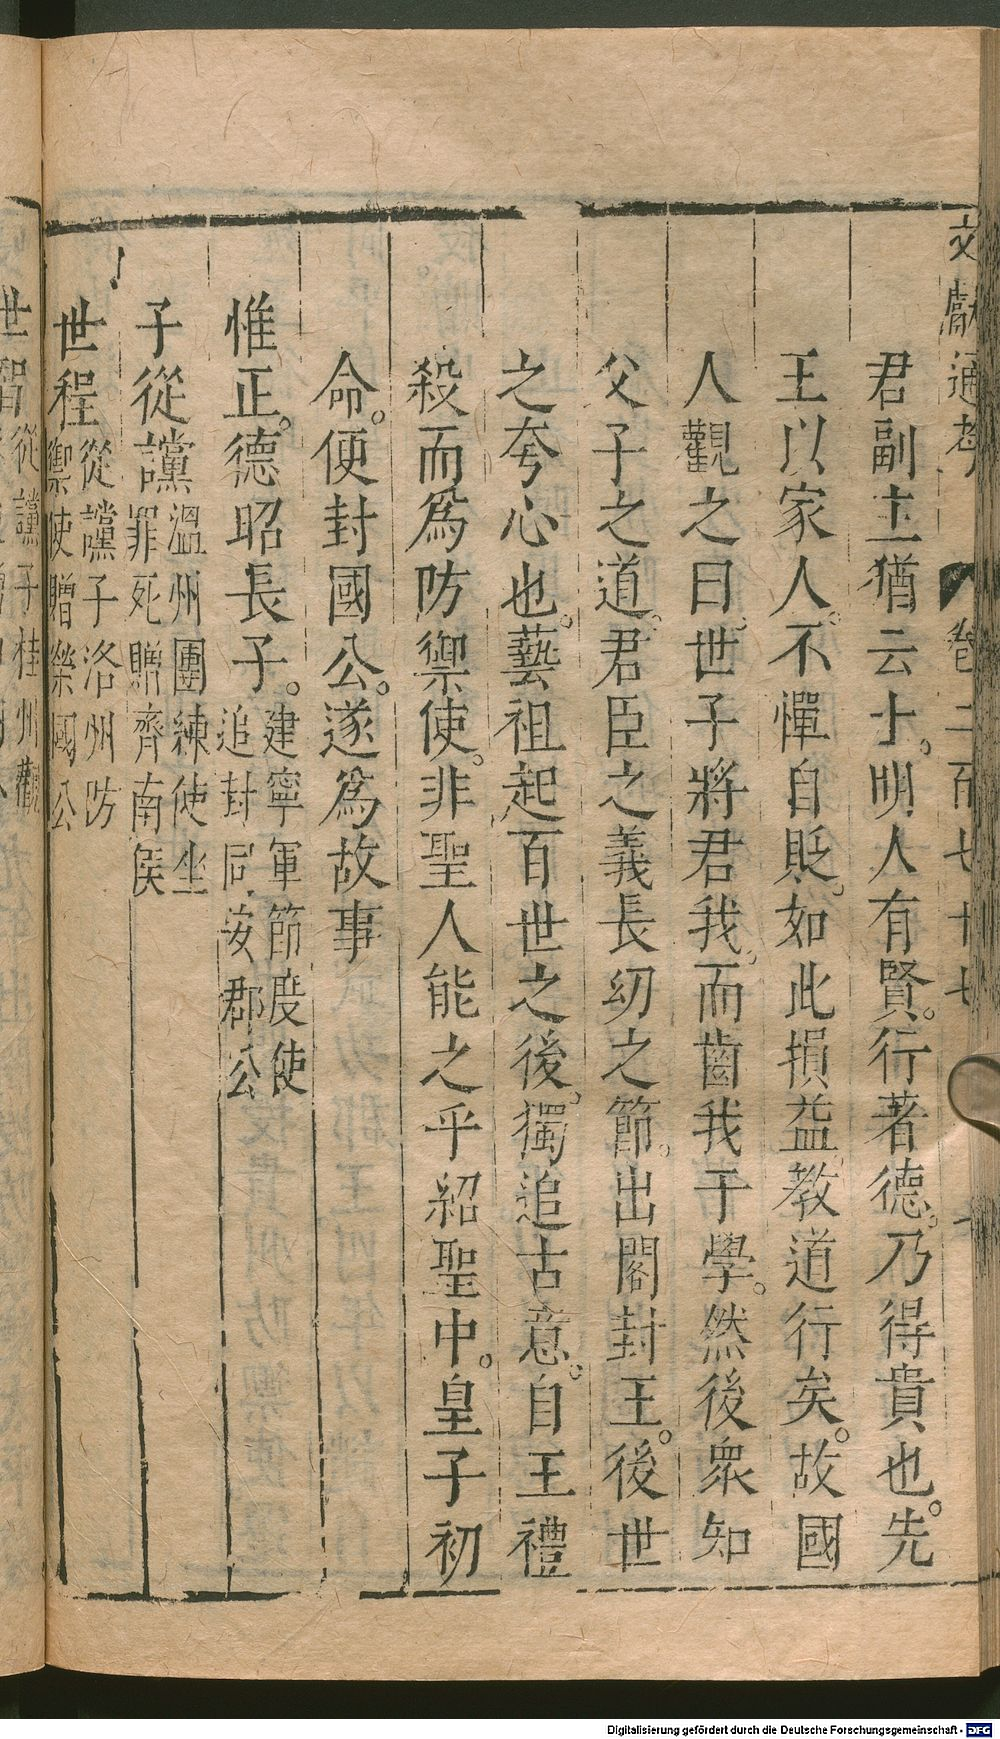 文獻通考 卷二百七十七
君副主猶云士。明人有賢。行著德。乃得貴也。先
王以家人。不憚自貶。如此損益。教道行矣。故國
人觀之曰。世子將君我。而齒我于學。然後衆知
父子之道。君臣之義長幼之節。出閣封王。後世
之夸心也。藝祖起百世之後。獨追古意。自王禮
殺而爲防禦使。非聖人能之乎紹聖中。皇子初
命。便封國公。遂爲故事
惟正。德昭長子。建寧軍節度使追封同安郡公
子從讜溫州團練使坐罪死贈齊南侯
世程從讜子洛州防禦使贈榮國公
世智從讜子桂州觀
Digitalisierung gefördert durch die Deutsche Forschungsgemeinschaft - DFG